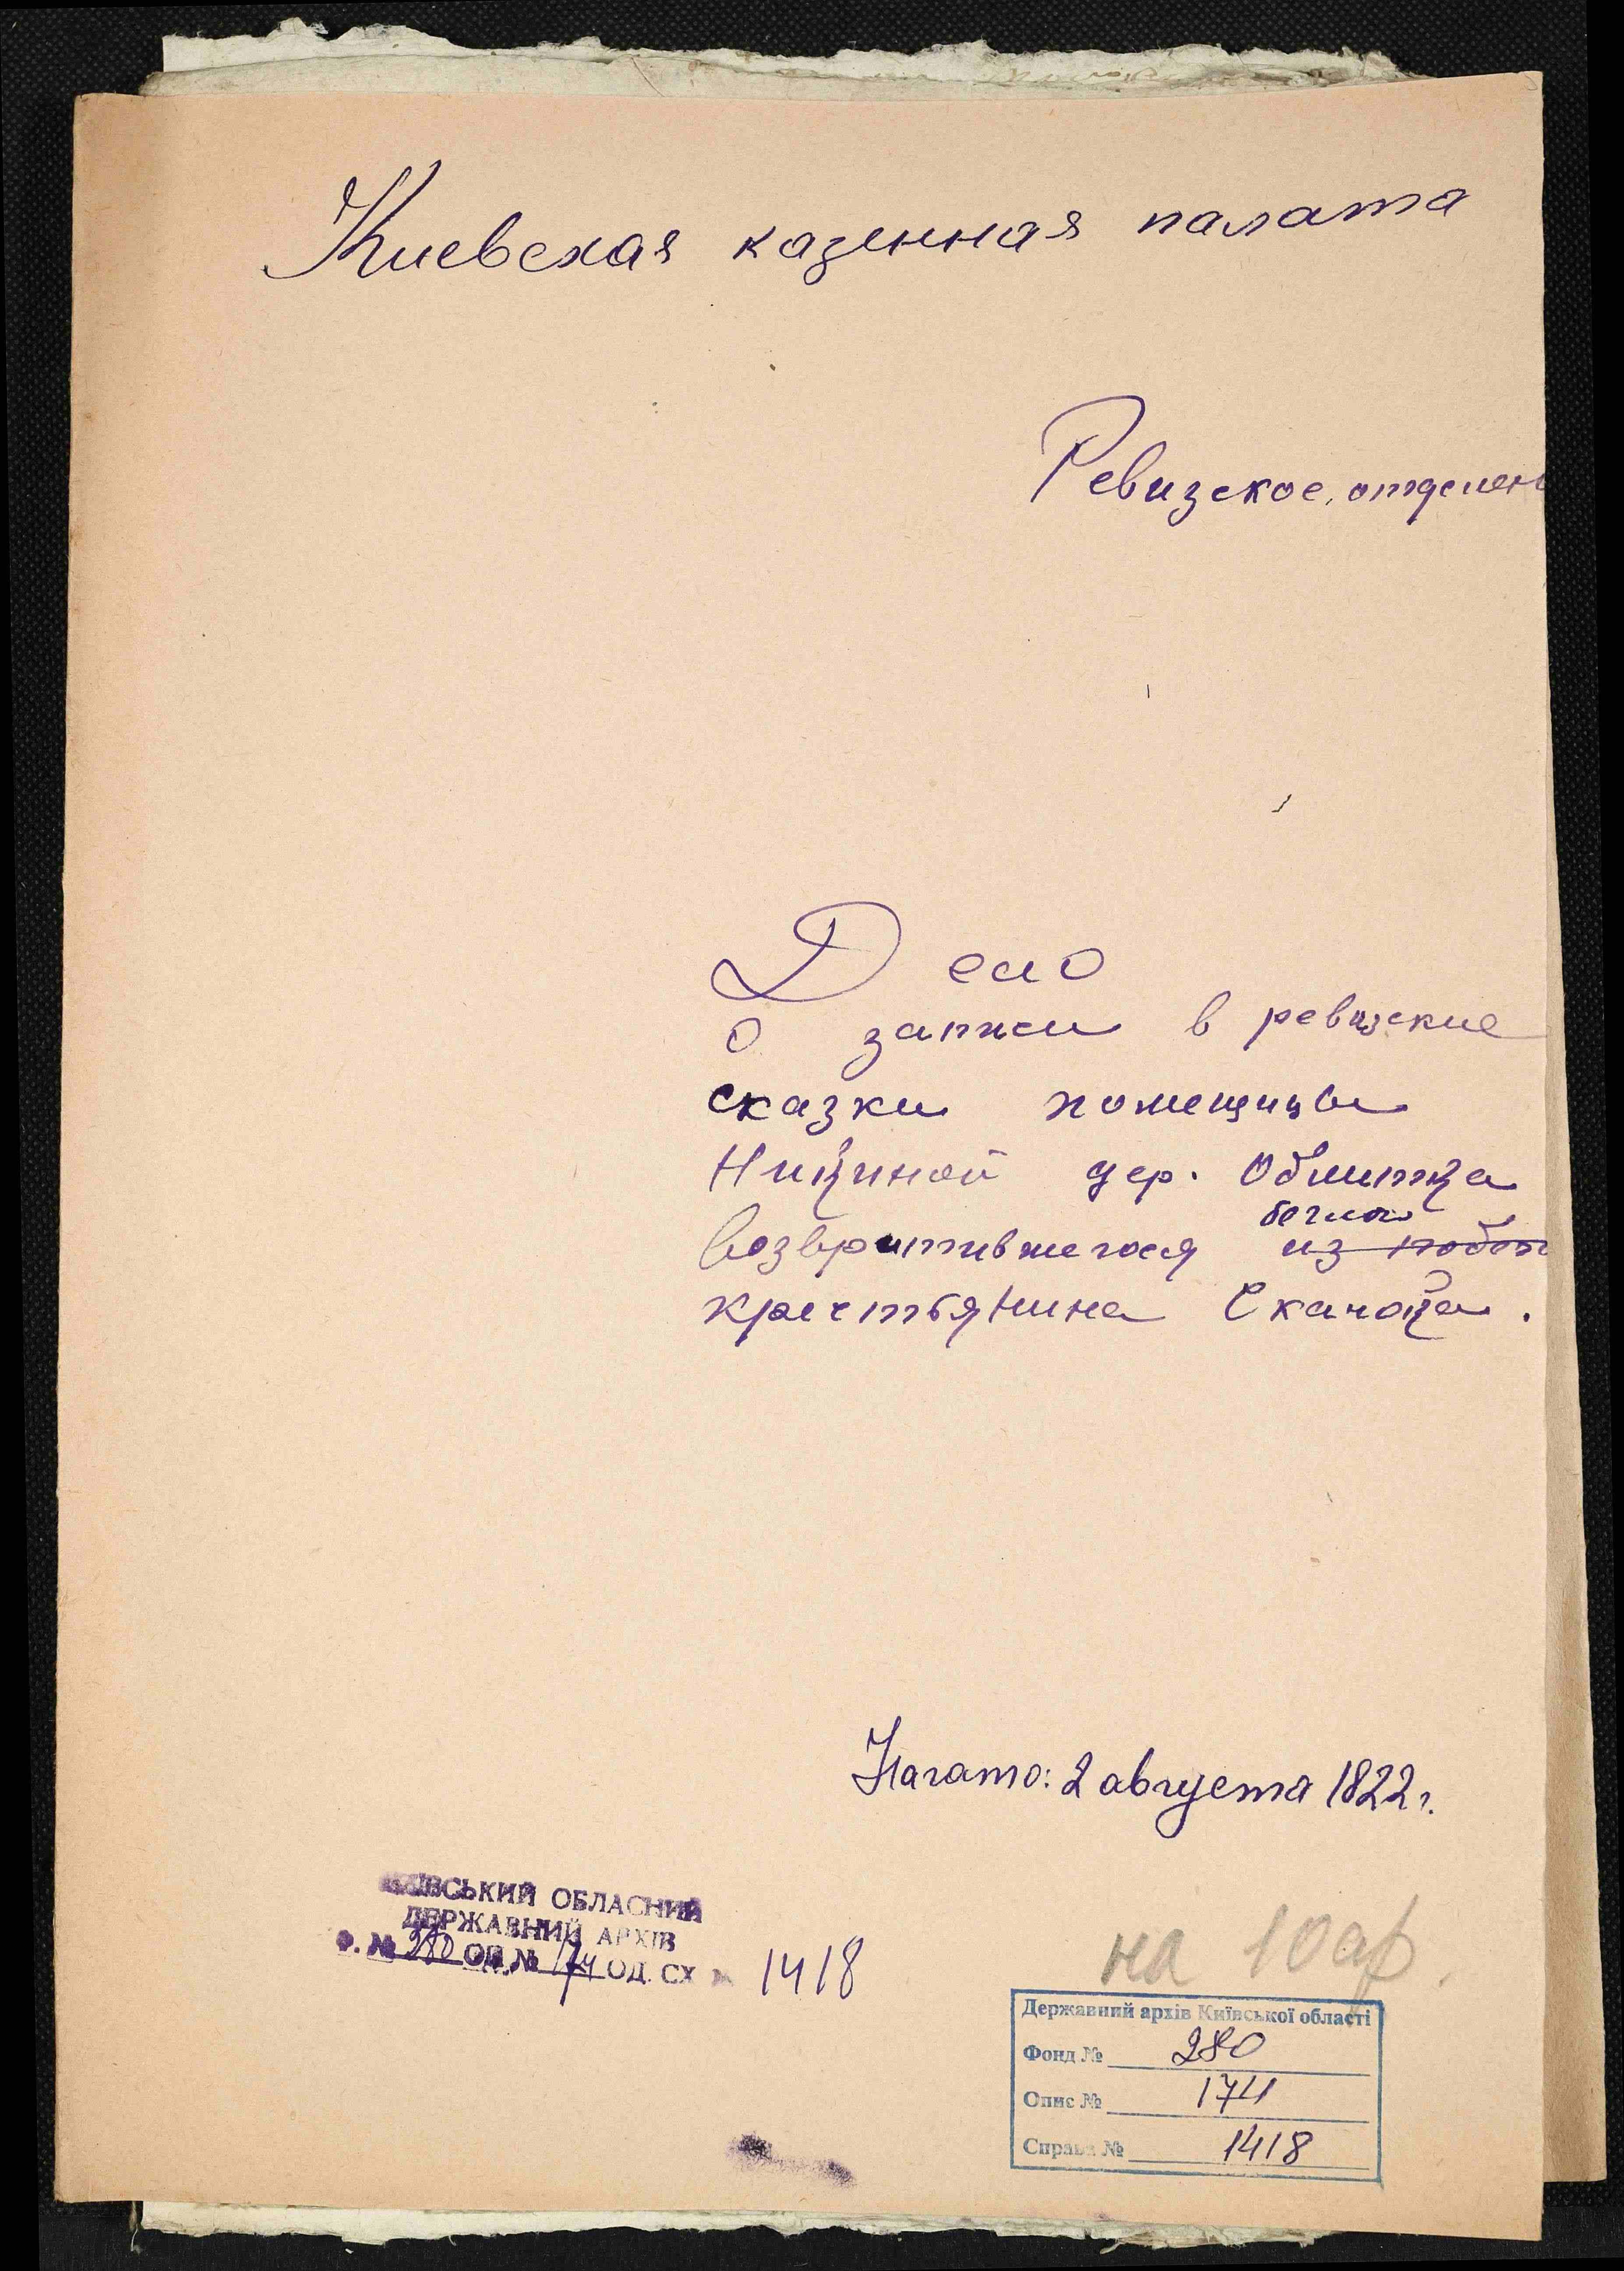 Киевская казенная палата
Ревизское отделен
Дело
о записи в ревизские
сказки помещицы
дер. Обшитка
беглого
возвратившегося из побег
крестьянина
Начато: 2 августа 1822 г.
КИЇВСЬКИЙ ОБЛАСНИЙ
ДЕРЖАВНИЙ АРХІВ
Ф. № 280 ОП. № 174 ОД. СХ № 1418
на 10 ар.
Державний архів Київської області
Фонд № 280
Опис № 174
Справа № 1418